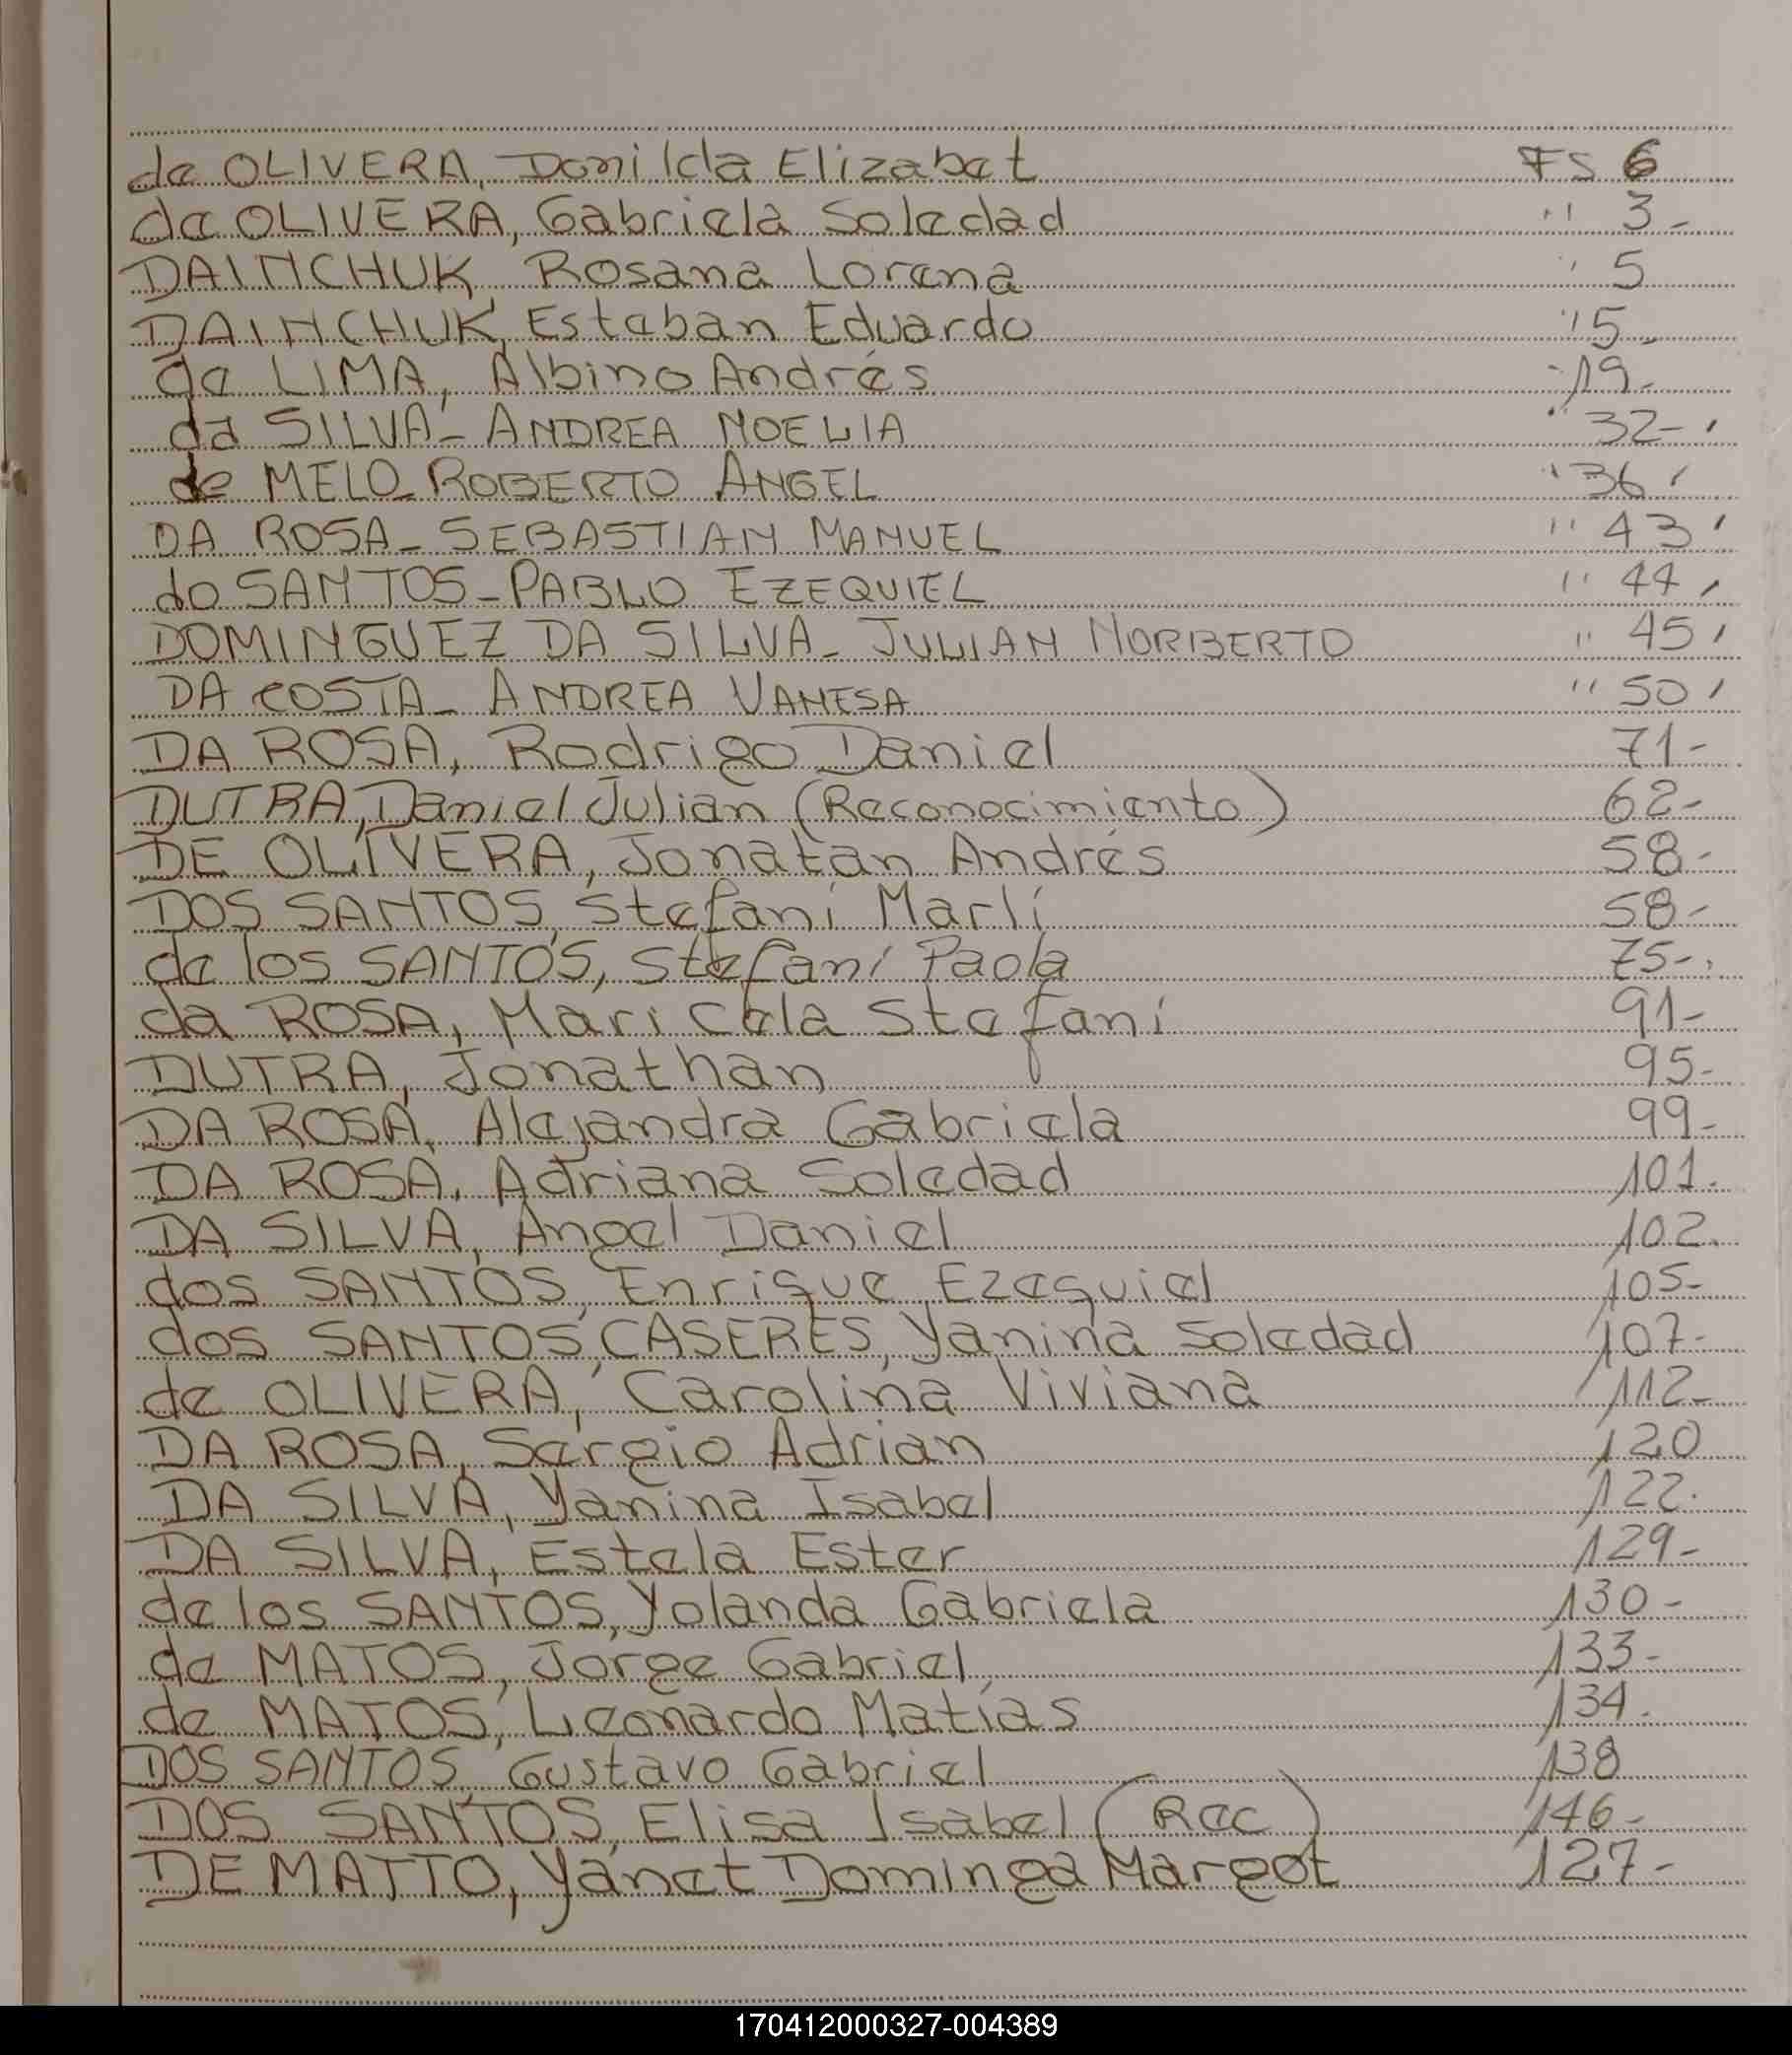 de OLIVERA, Donilda Elizabet FS 6
de OLIVERA, Gabriela Soledad " 3-
DAINCHUK, Rosana Lorena " 5
DAINCHUK, Esteban Eduardo " 5-
de LIMA, Albino Andrés " 19-
da SILVA - ANDREA NOELIA " 32-
de MELO - ROBERTO ANGEL " 36
DA ROSA - SEBASTIAN MANUEL " 43
do SANTOS - PABLO EZEQUIEL " 44
DOMINGUEZ DA SILVA - JULIAN NORBERTO " 45
DA COSTA - ANDREA VANESA " 50
DA ROSA, Rodrigo Daniel 71-
DUTRA, Daniel Julian (Reconocimiento) 62-
DE OLIVERA, Jonatan Andrés 58-
DOS SANTOS, Stefani Marlí 58-
de los SANTOS, Stefani Paola 75-
da ROSA, Maricela Stefani 91-
DUTRA, Jonathan 95-
DA ROSA, Alejandra Gabriela 99-
DA ROSA, Adriana Soledad 101.
DA SILVA, Angel Daniel 102.
dos SANTOS, Enrique Ezequiel 105-
dos SANTOS, CASERES, Yanina Soledad 107-
de OLIVERA, Carolina Viviana 112-
DA ROSA, Sergio Adrian 120
DA SILVA, Yanina Isabel 122.
DA SILVA, Estela Ester 129-
de los SANTOS, Yolanda Gabriela 130-
de MATOS, Jorge Gabriel 133-
de MATOS, Leonardo Matías 134.
DOS SANTOS, Gustavo Gabriel 138
DOS SANTOS, Elisa Isabel (Rec) 146-
DE MATTO, Yanet Dominga Margot 127-
170412000327-004389